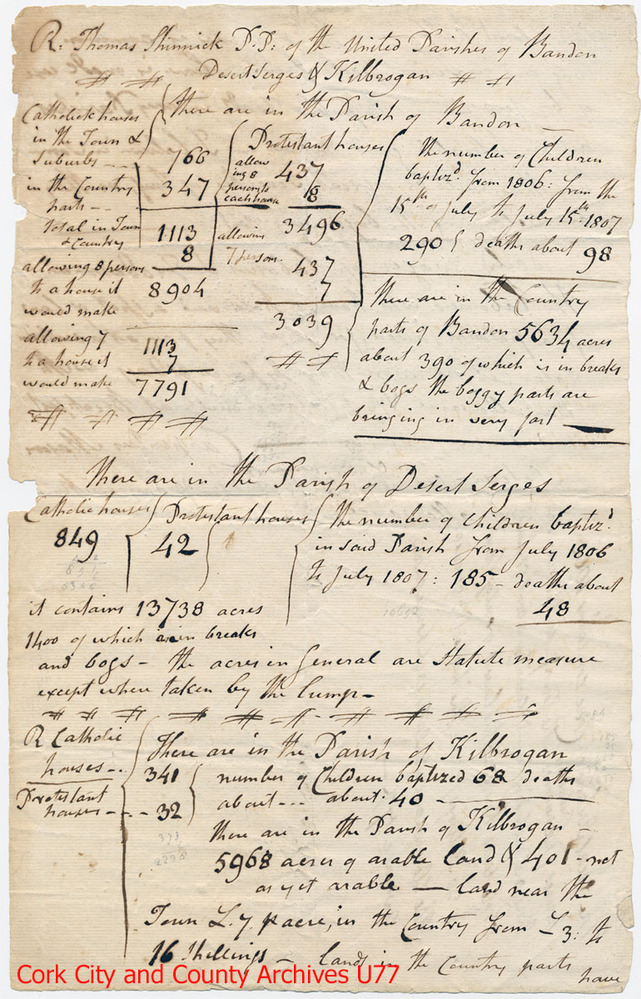 R: Thomas Shinnick P.P: of the United Parishes of Bandon
Desert Serges & Kilbrogan
There are in the Parish of Bandon
Catholick houses
in the Town &
Suburbs - 766
in the Country
parts - 347
total in Town
& Country 1113
8
allowing 8 persons
to a house it 8904
would make
allowing 7 1113
to a house it 7
would make 7791
Protestant houses
allow
ing 8 437
persons to
each house 8
3496
allowing
7 persons. 437
7
3039
The number of Children
baptizd. from 1806: from the
15th of July to July 15th: 1807
290 deaths about 98
There are in the Country
parts of Bandon 5634 acres
about 390 of which is in breaks
& bogs the boggy parts are
bringing in very fast
There are in the Parish of Desert Serges
Catholic houses
849
Protestant houses
42
The number of Children baptizd.
in said Parish from July 1806
to July 1807: 185 - deaths about
48
it contains 13738 acres
1400 of which is in breaks
and bogs - the acres in General are Statute measure
except where taken by the lump -
R Catholic
houses - 341
Protestant
houses - 32
There are in the Parish of Kilbrogan
number of Children baptized 68 deaths
about - about. 40 -
There are in the Parish of Kilbrogan -
5968 acres of arable Land & 401 - not
as yet arable - Land near the
Town L. 7. p acre, in the Country from L 3: to
16 Shillings - Lands in the Country parts
have
Cork City and County Archives U77